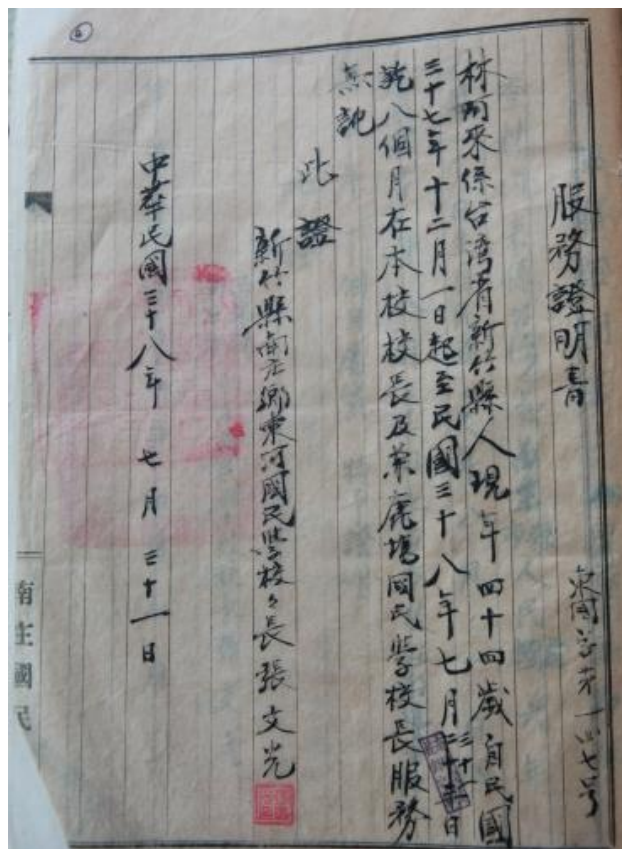 服務證明書
東國字第一四七号
林阿來係台湾省新竹縣人現年四十四歲自民國
三十七年十二月一日起至民國三十八年七月三十一日
蒞八個月在本校校長及兼鹿場國民學校長服務
無訛
此證
新竹縣南庄鄉東河國民學校々長張文光
中華民國三十八年七月三十一日
南庄國民
6